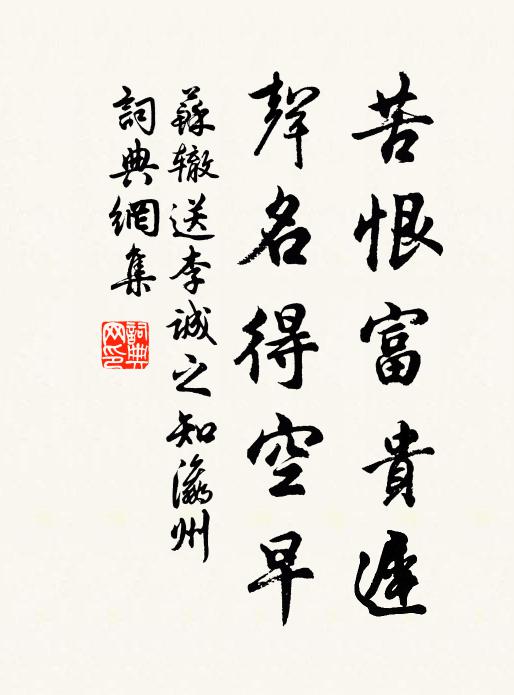 苦恨富貴遲
聲名得空早
蘇辙送李诚之知瀛州
詞典網集
詞典
网印